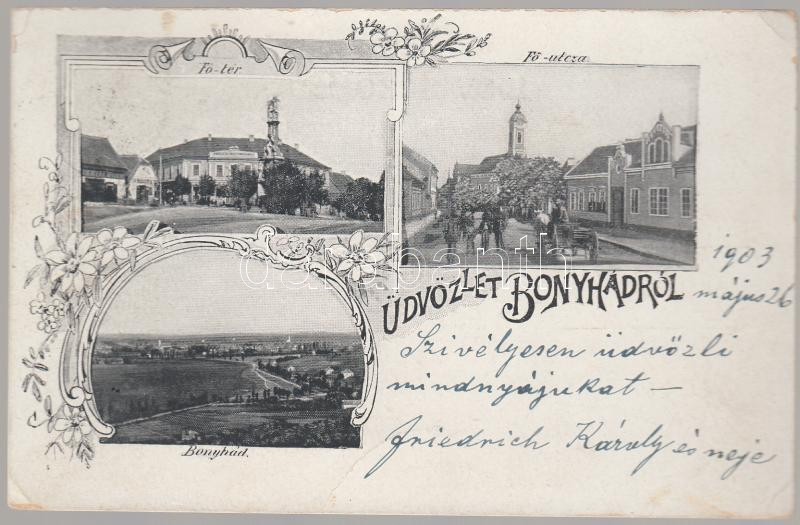 Fő-tér
Fő-utcza.
ÜDVÖZLET BONYHÁDRÓL
1903
május 26
Szivélyesen üdvözli
mindnyájukat —
Friedrich Károly és neje
Bonyhád.
darabanth